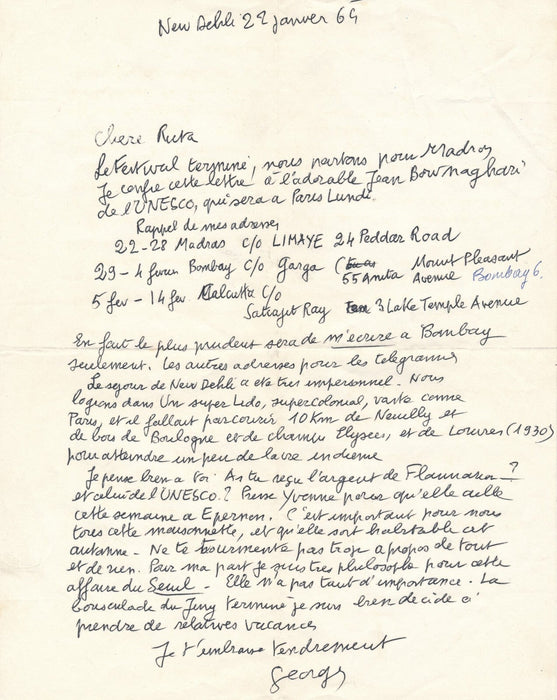 New Dehli 22 janvier 65
Chere Ruta
Le Festival terminé, nous partons pour Madras
Je confie cette lettre à l'adorable Jean Bownaghari
de l'UNESCO, qui sera a Paris Lundi.
Rappel de mes adresses
22-28 Madras c/o LIMAYE 24 Peddar Road
29-4 fevrier Bombay c/o Garga ( Mount Pleasant
55 Anita Avenue Bombay 6.
5 fev - 14 fev Calcutta c/o
Satyajit Ray 3 Lake Temple Avenue
En fait le plus prudent sera de m'ecrire a Bombay
seulement. Les autres adresses pour les telegrammes
Le sejour de New Dehli a ete tres impersonnel. Nous
logions dans Un super Lido, supercolonial, vaste comme
Paris, et il fallait parcourir 10 Km de Neuilly et
de bois de Boulogne et de champs Elysees, et de Louvres (1930)
pour atteindre un peu de la vie indienne
Je pense bien a toi. As tu reçu l'argent de Flammarion ?
et celui de l'UNESCO ? Presse Yvonne pour qu'elle aille
cette semaine a Epernon. C'est important pour nous
tous cette maisonnette, et qu'elle soit habitable cet
automne - Ne te tourmente pas trop a propos de tout
et de rien. Pour ma part je suis tres philosophe pour cette
affaire du Seuil - Elle n'a pas tant d'importance. La
bousculade du Jury terminé je suis bien decidé a
prendre de relatives vacances
Je t'embrasse tendrement
Georges